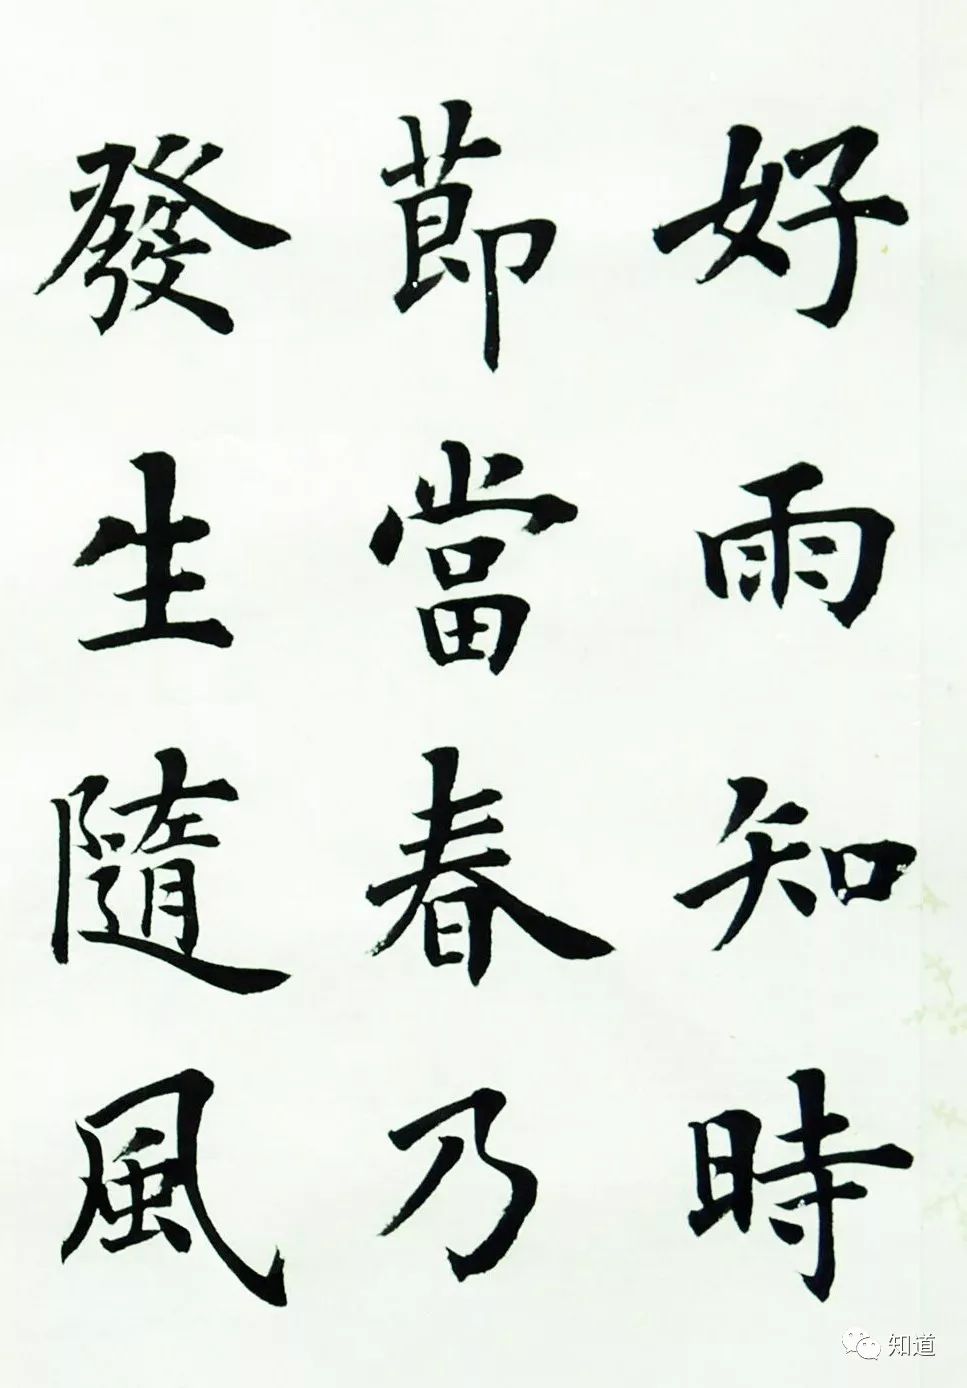 好雨知時
節當春乃
發生隨風
知道